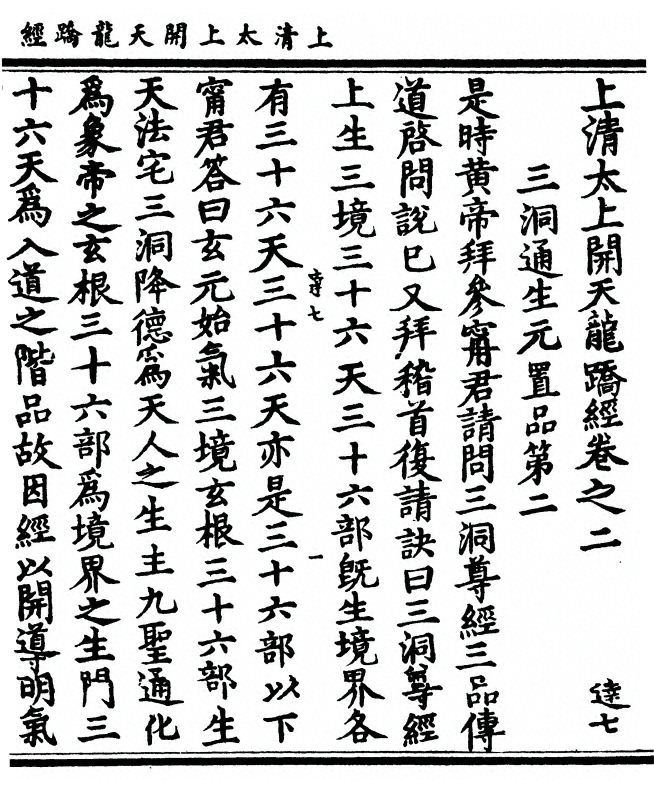 上清太上開天龍蹻經
上清太上開天龍蹻經卷之二
達七
三洞通生元置品第二
是時黃帝拜參甯君請問三洞尊經三品傳
道啓問說已又拜稽首復請訣曰三洞尊經
上生三境三十六天三十六部旣生境界各
一
有三十六天三十六天亦是三十六部以下
甯君答曰玄元始氣三境玄根三十六部生
天法宅三洞降德爲天人之生主九聖通化
爲象帝之玄根三十六部爲境界之生門三
十六天爲入道之階品故因經以開導明氣